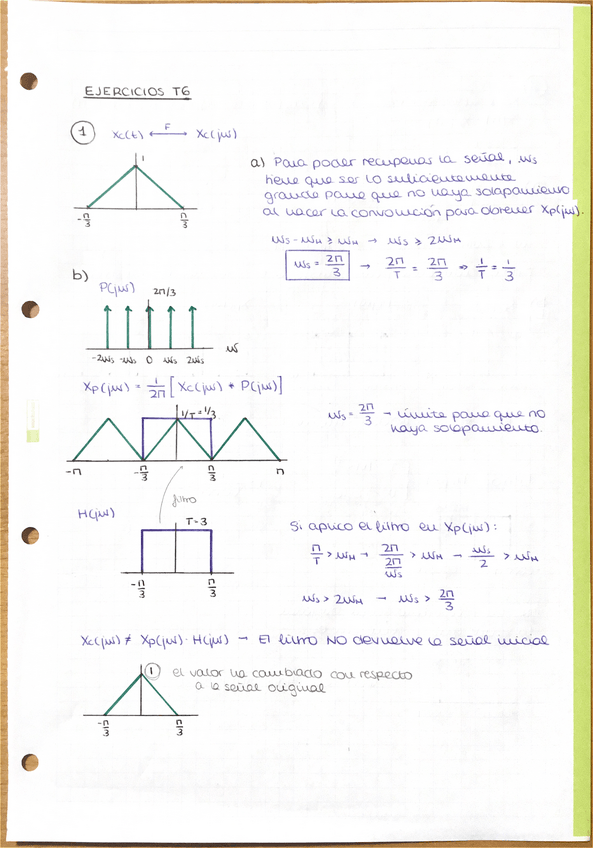 EJERCICIOS T6
1 Xc(t) ⟷F Xc(jω)
1
-π/3 π/3
a) Para poder recuperar la señal, ωs
tiene que ser lo suficientemente
grande para que no haya solapamiento
al hacer la convolución para obtener Xp(jω).
ωs - ωM ≥ ωM → ωs ≥ 2ωM
ωs = 2π/3 → 2π/T = 2π/3 ⇒ 1/T = 1/3
b)
P(jω) 2π/3
-2ωs -ωs 0 ωs 2ωs ω
Xp(jω) = 1/2π [Xc(jω) * P(jω)]
1/T = 1/3
-π -π/3 π/3 π
ωs = 2π/3 → límite para que no
haya solapamiento.
filtro
H(jω)
T = 3
-π/3 π/3
Si aplico el filtro en Xp(jω):
π/T > ωM → 2π/(2π/ωs) > ωM → ωs/2 > ωM
ωs > 2ωM → ωs > 2π/3
Xc(jω) ≠ Xp(jω) · H(jω) → El filtro NO devuelve la señal inicial
1 el valor ha cambiado con respecto
a la señal original
-π/3 π/3